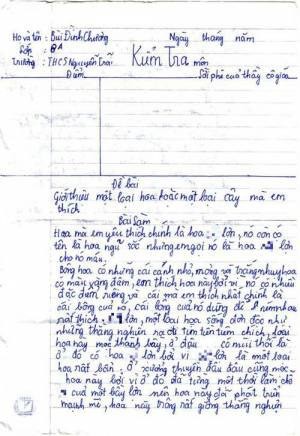 Họ và tên: Bùi Đình Chương Ngày tháng năm
Lớp: 8A
Trường: THCS Nguyễn Trãi Kiểm Tra môn
Điểm Lời phê của thầy cô giáo
Đề bài
Giới thiệu một loại hoa hoặc một loại cây mà em
thích
Bài Làm
Hoa mà em yêu thích chính là hoa lớn, nó còn có
tên là hoa ngũ sắc nhưng em gọi nó là hoa lớn
cho nó máu.
Bông hoa có những cái cánh nhỏ, mỏng và nhụy hoa
có màu vàng đậm, em thích hoa này bởi vì, nó có nhiều
đặc điểm riêng và cái mà em thích nhất chính là
cái bông của nó, cái bông của nó dùng để
rất thích lớn, một loại hoa sống đơn độc như
những thằng nghiện ra đi tìm tiêm chích, loài
hoa này mọc thành bầy, ở đâu có mùi thối là
ở đó có hoa lớn bởi vì lớn là một loại
hoa rất bẩn, ở xương thuyền đâu đâu cũng mọc
hoa này bởi vì ở đó đã từng một thời làm chỗ
của một bầy lợn nên hoa này đã phát triển
mạnh mẽ, hoa này trông rất giống thằng nghiện